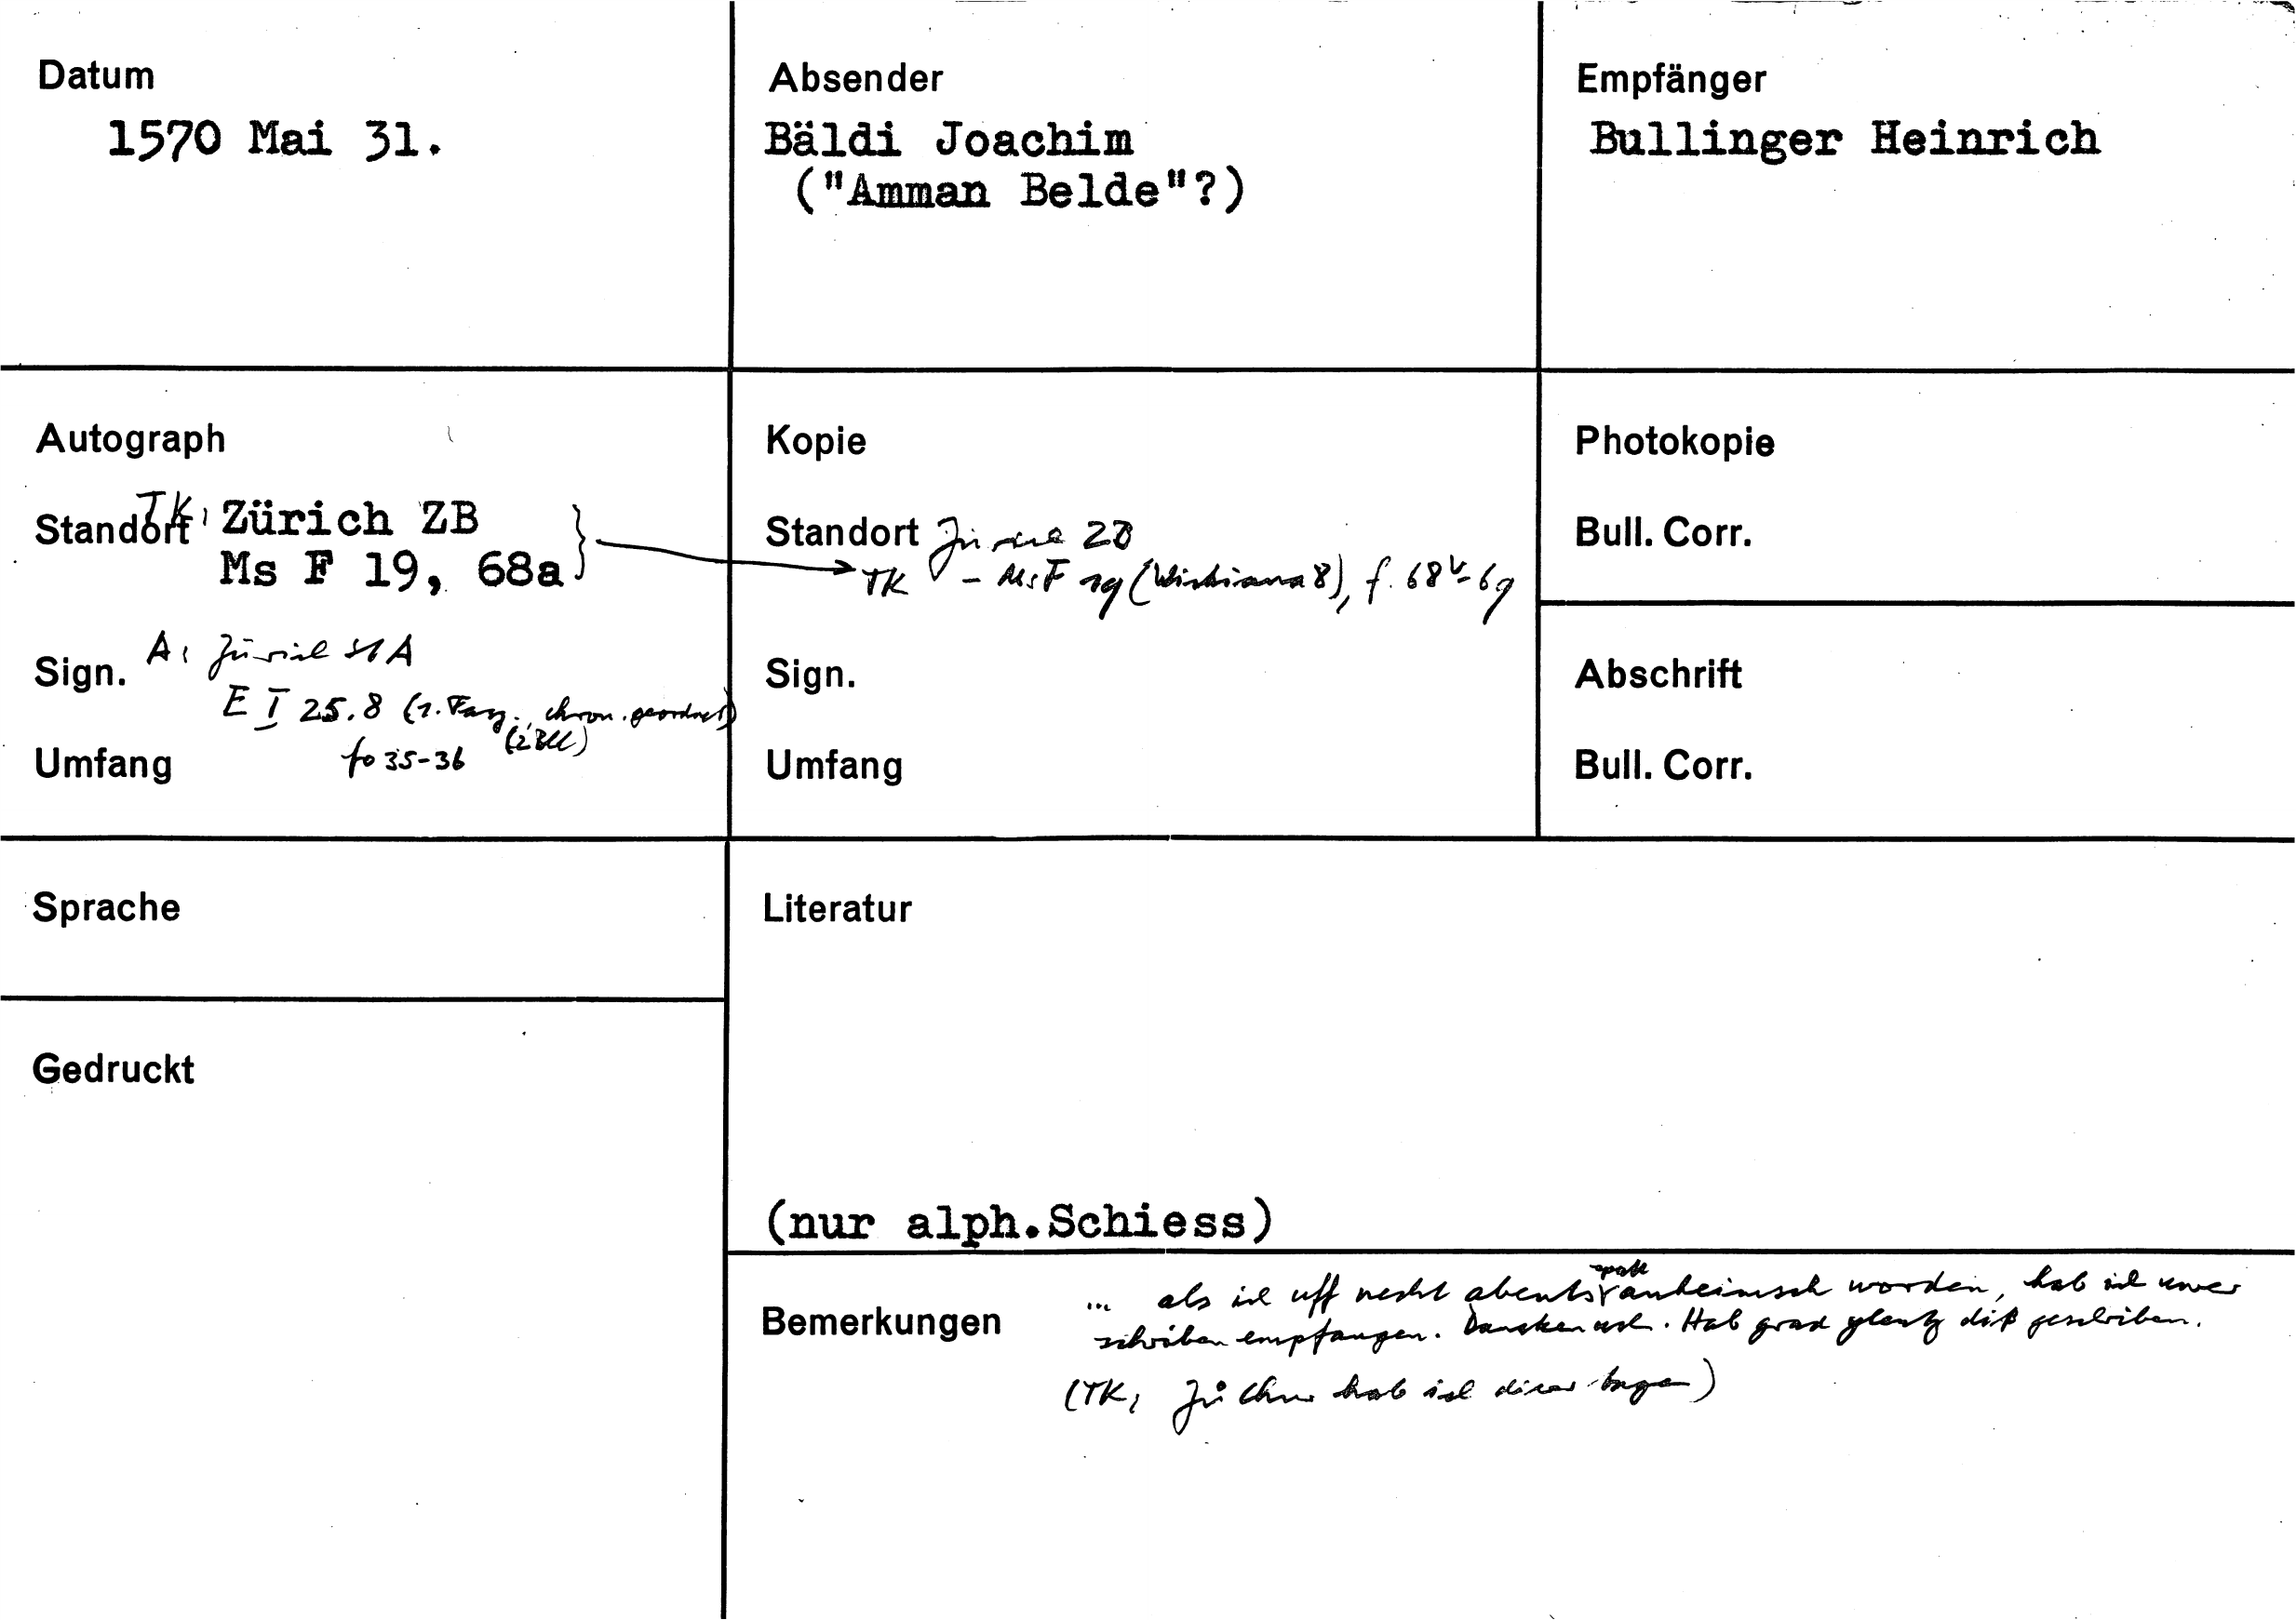 Datum
1570 Mai 31.
Absender
Bäldi Joachim
("Amman Belde"?)
Empfänger
Bullinger Heinrich
Autograph
Standort TK: Zürich ZB
Ms F 19, 68a
Sign. A: Zürich StA
E I 25.8 (1. Fasz., chron. geordnet)
(2 Bll)
Umfang fo 35-36
Kopie
Standort Zürich ZB
TK - Ms F 19 (Wickiana 8), f. 68v-69
Sign.
Umfang
Photokopie
Bull. Corr.
Abschrift
Bull. Corr.
Sprache
Gedruckt
Literatur
(nur alph.Schiess)
Bemerkungen
... als ich uff necht abents spatt anheimsch worden, hab ich uwer
schriben empfangen. Hab grad diß geschriben.
(TK: Zů Chur hab ich diser tagen)